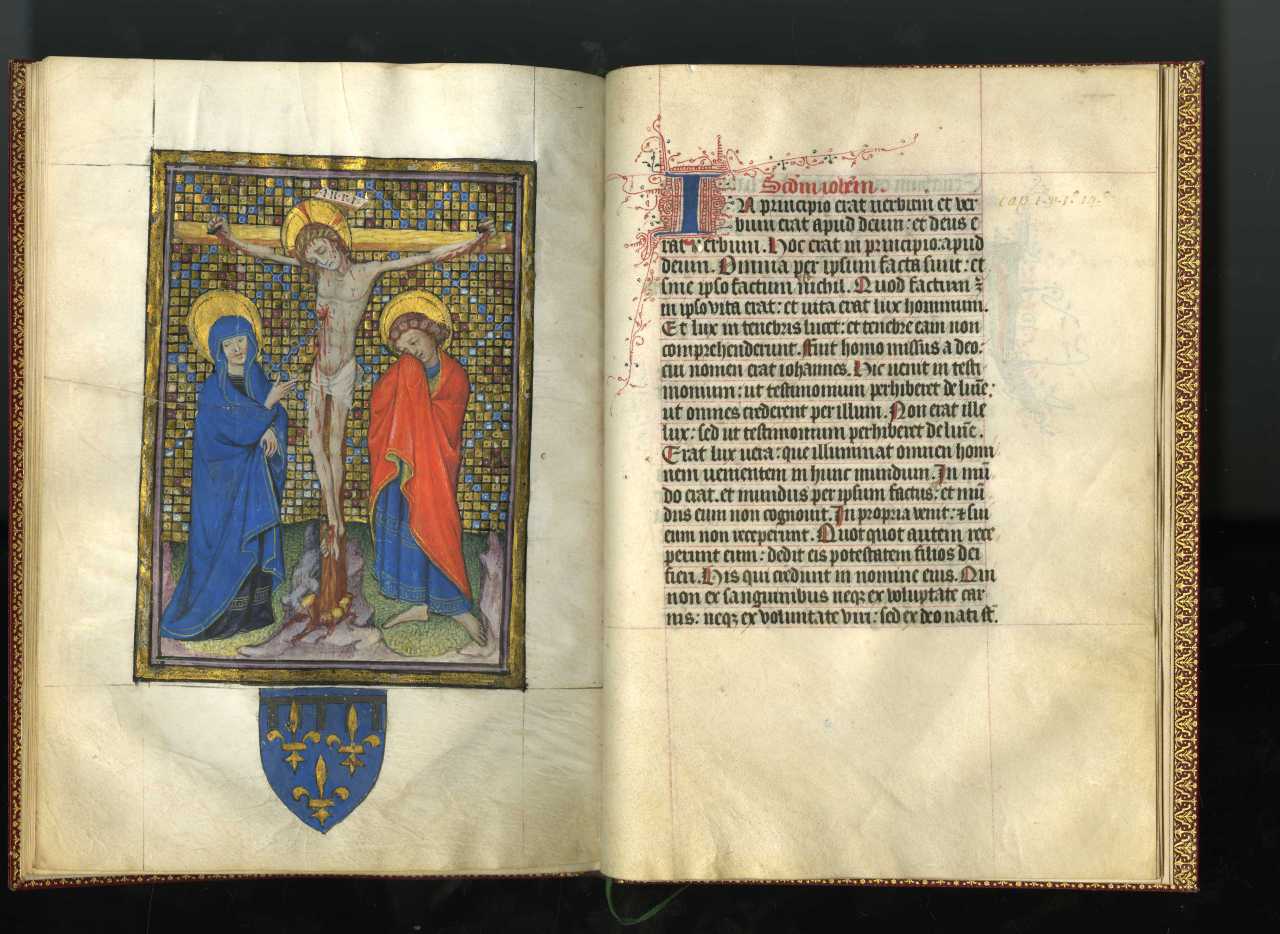 INRI
Scdm iohem
IN principio erat uerbum et ver
bum erat apud deum: et deus e
rat verbum. Hoc erat in principio apud
deum. Omnia per ipsum facta sunt: et
sine ipso factum nichil. Quod factum ē
in ipso vita erat: et uita erat lux hominum.
Et lux in tenebris lucet: et tenebre eam non
comprehenderunt. Fuit homo missus a deo:
cui nomen erat iohannes. Hic uenit in testi
monium: ut testimonium perhiberet de lumē:
ut omnes crederent per illum. Non erat ille
lux: sed ut testimonium perhiberet de lumē.
Erat lux uera: que illuminat omnem homi
nem uenientem in hunc mundum. In mū
do erat. et mundus per ipsum factus: et mū
dus eum non cognouit. In propria venit: ⁊ sui
eum non receperunt. Quotquot autem rece
perunt eum: dedit eis potestatem filios dei
fieri. His qui credunt in nomine eius. Qui
non ex sanguinibus neqꝫ ex voluptate car
nis: neqꝫ ex voluntate viri: sed ex deo nati st̄.